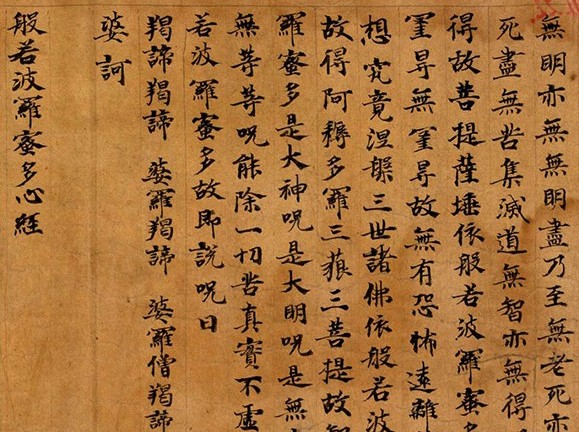 無明亦無無明盡乃至無老死亦
死盡無苦集滅道無智亦無得
得故菩提薩埵依般若波羅蜜多
罣㝵無罣㝵故無有恐怖遠離
想究竟涅槃三世諸佛依般若波
故得阿耨多羅三藐三菩提故
羅蜜多是大神呪是大明呪是無
無等等呪能除一切苦真實不虛
若波羅蜜多故即說呪曰
羯諦羯諦 婆羅羯諦 婆羅僧羯諦
婆訶
般若波羅蜜多心經